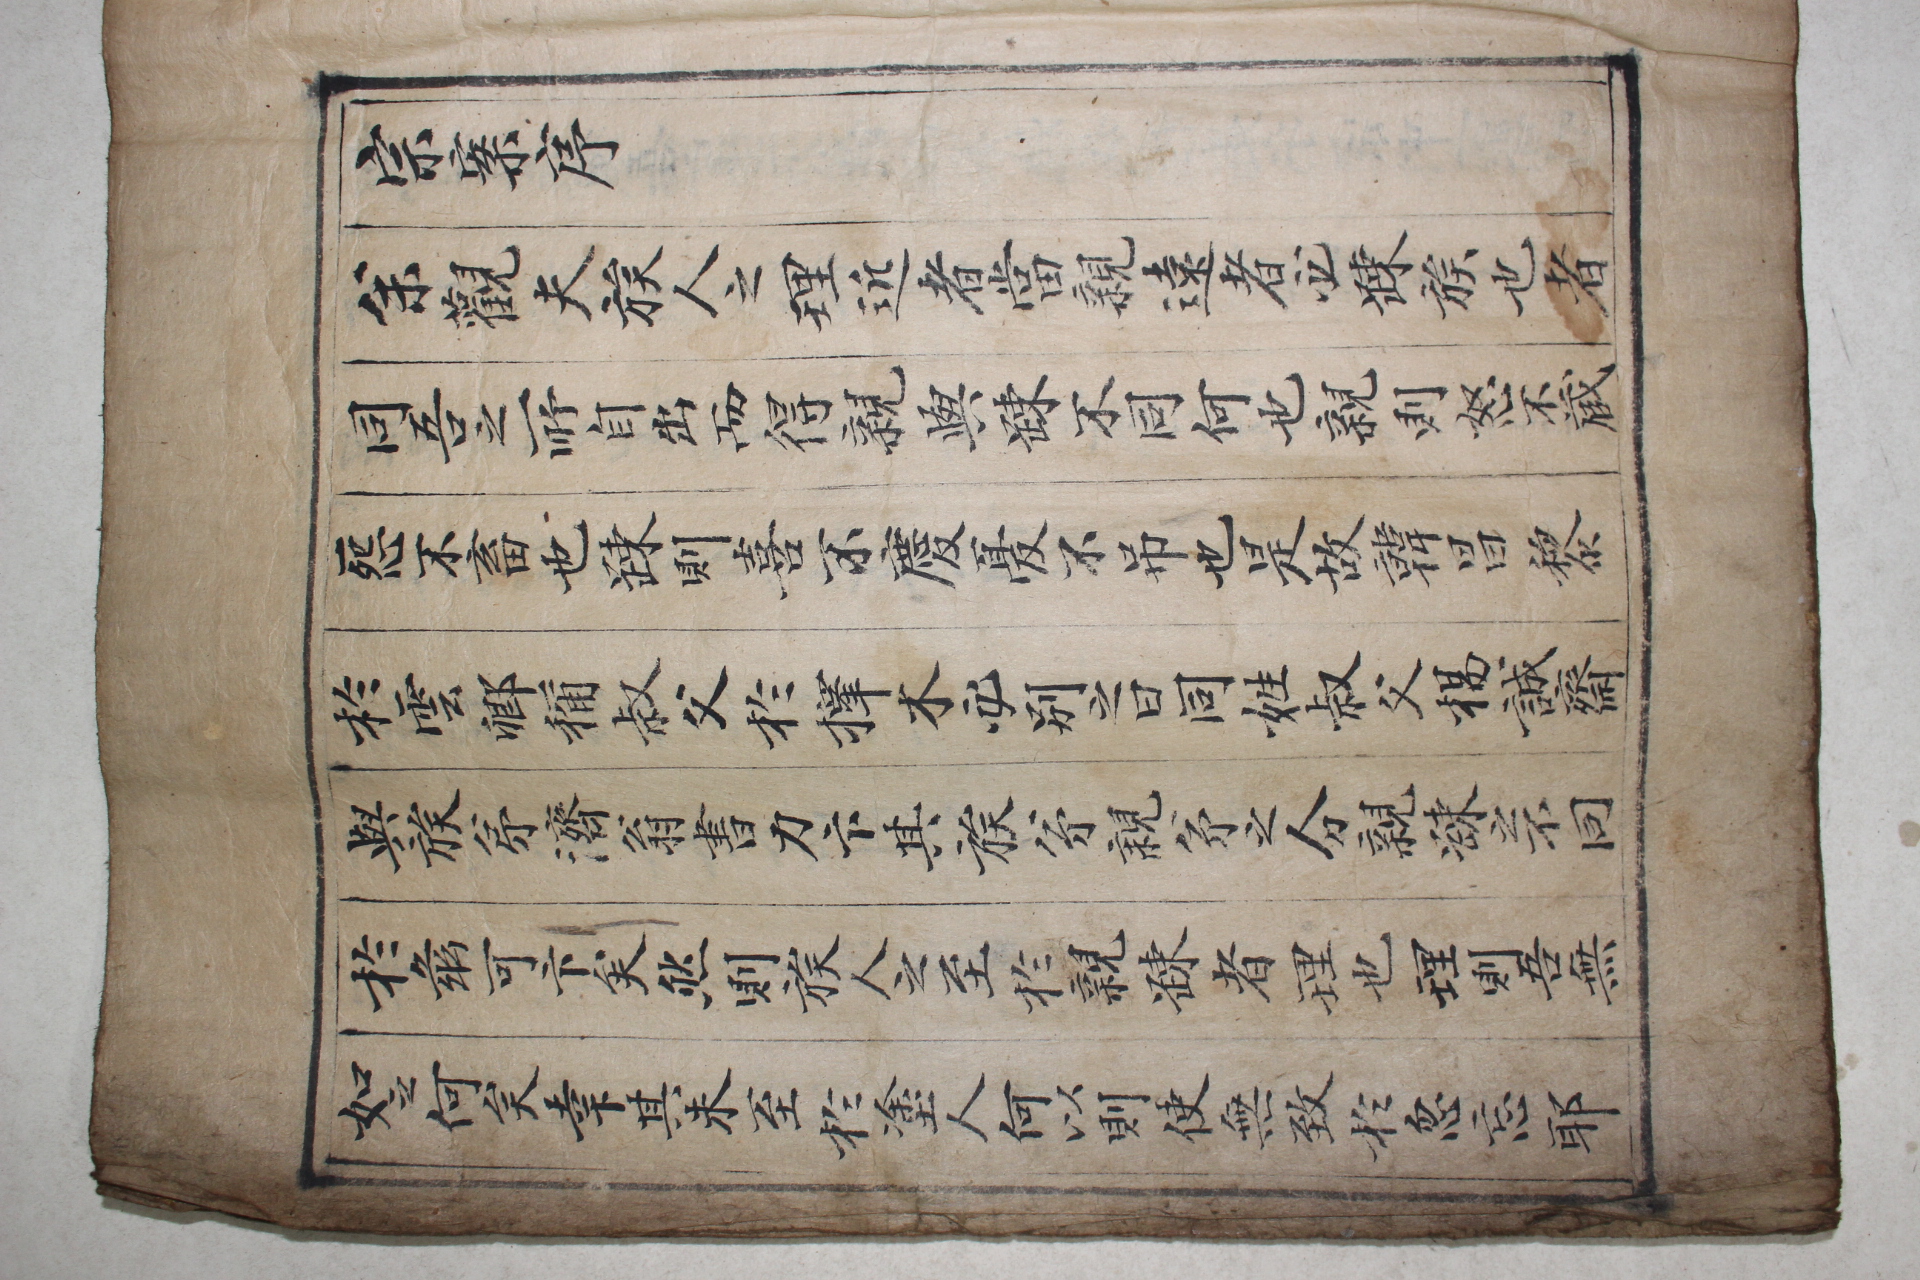 宗案序
余觀夫族人之理近者當親遠者必踈族也者
同吾之所自出而得親與踈不同何也親則怒不蔵
怨不畜也踈則喜不慶憂不吊也是故韓昌黎
於雲卿稱叔父於擇木必別之曰同姓叔父楊誠齋
與族弟濟翁書力卞其族弟親弟之分親踈之不同
於玆可卞矣然則族人之至於親踈者理也理則吾無
如之何矣幸其未至於塗人何以則使無致於忽忘耶